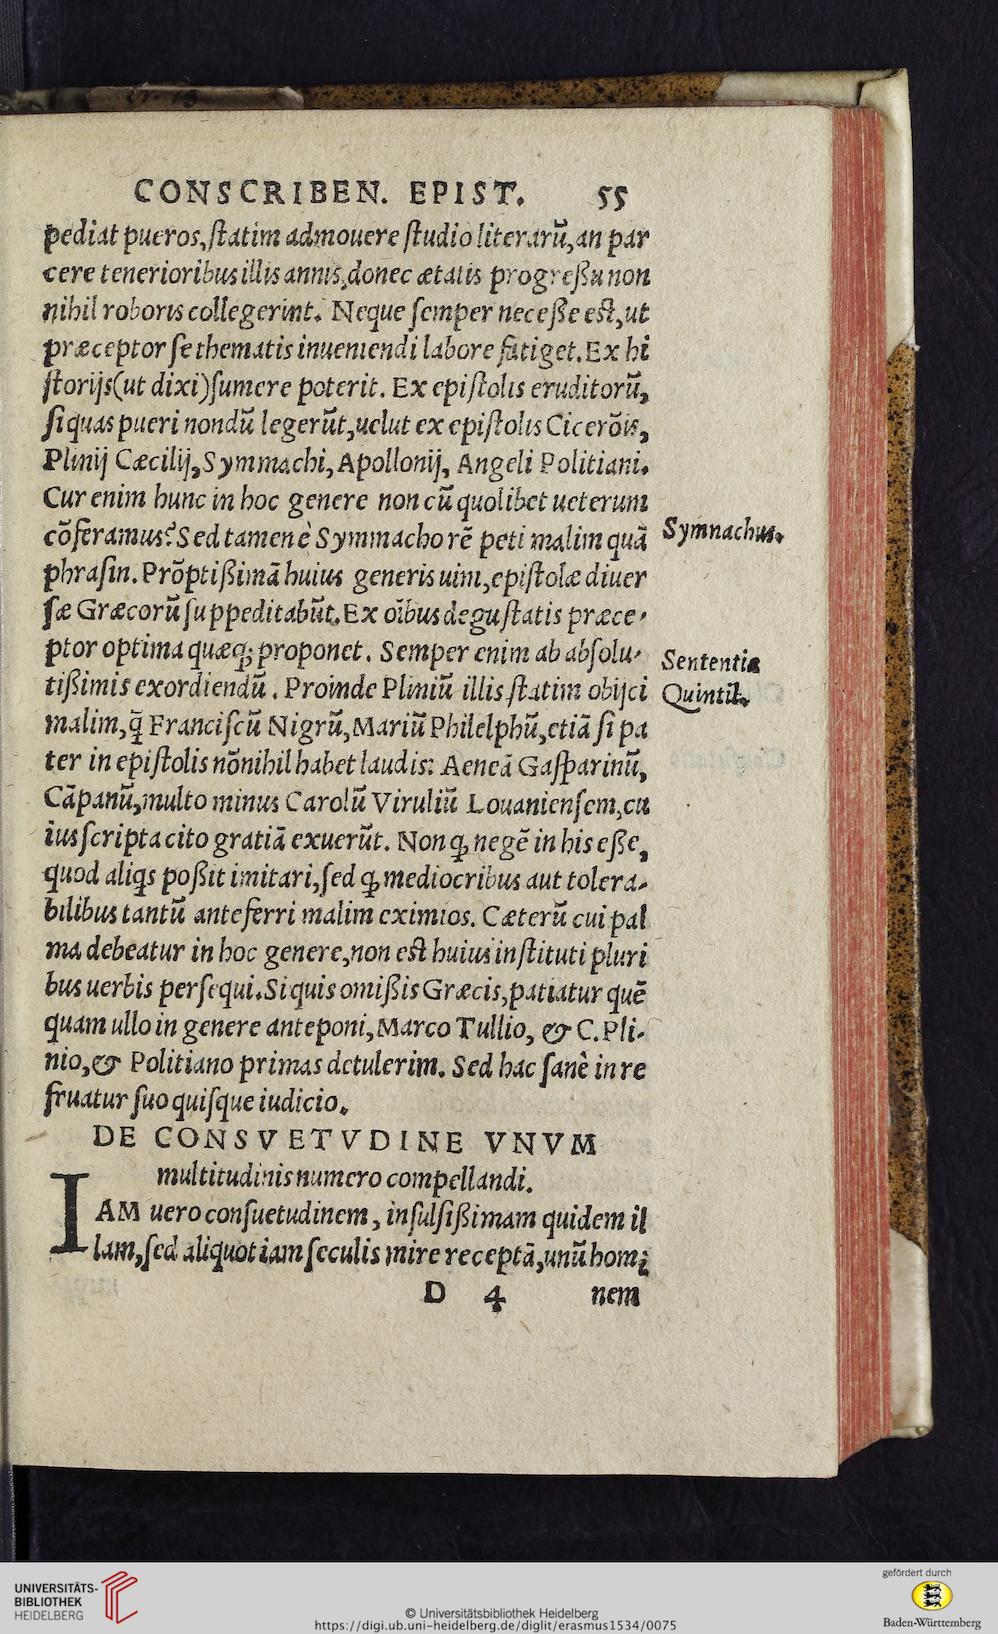 CONSCRIBEN. EPIST. 55
pediat pueros, ſtatim admouere ſtudio literarũ, an par
cere tenerioribus illis annis, donec ætatis progreßu non
nihil roboris collegerint. Neque ſemper neceße eſt, ut
præceptor ſe thematis inueniendi labore fatiget. Ex hi
ſtorijs (ut dixi) ſumere poterit. Ex epiſtolis eruditorũ,
ſi quas pueri nondũ legerũt, uelut ex epiſtolis Cicerõis,
Plinij Cæcilij, Symmachi, Apollonij, Angeli Politiani.
Cur enim hunc in hoc genere non cũ quolibet ueterum
cõferamus? Sed tamen è Symmacho rẽ peti malim quã
Symnachus.
phraſin. Prõptißimã huius generis uim, epiſtolæ diuer
ſæ Græcorũ ſuppeditabũt. Ex oĩbus deguſtatis præce-
ptor optima quæq; proponet. Semper enim ab abſolu-
Sententia
tißimis exordiendũ. Proinde Pliniũ illis ſtatim obijci
Quintil.
malim, q̃ Franciſcũ Nigrũ, Mariũ Philelphũ, etiã ſi pa
ter in epiſtolis nõnihil habet laudis: Aeneã Gaſparinũ,
Cãpanũ, multo minus Carolũ Viruliũ Louanienſem, cu
ius ſcripta cito gratiã exuerũt. Non ꝙ negẽ in his eße,
quod aliqs poßit imitari, ſed ꝙ mediocribus aut tolera-
bilibus tantũ anteferri malim eximios. Cæterũ cui pal
ma debeatur in hoc genere, non eſt huius inſtituti pluri
bus uerbis perſequi. Si quis omißis Græcis, patiatur quẽ
quam ullo in genere anteponi, Marco Tullio, & C. Pli-
nio, & Politiano primas detulerim. Sed hac ſanè in re
fruatur ſuo quiſque iudicio.
DE CONSVETVDINE VNVM
multitudinis numero compellandi.
IAM uero conſuetudinem, inſulſißimam quidem il
lam, ſed aliquot iam ſeculis mire receptã, unũ homi
D 4 nem
UNIVERSITÄTS-
BIBLIOTHEK
HEIDELBERG
© Universitätsbibliothek Heidelberg
https://digi.ub.uni-heidelberg.de/diglit/erasmus1534/0075
gefördert durch
Baden-Württemberg